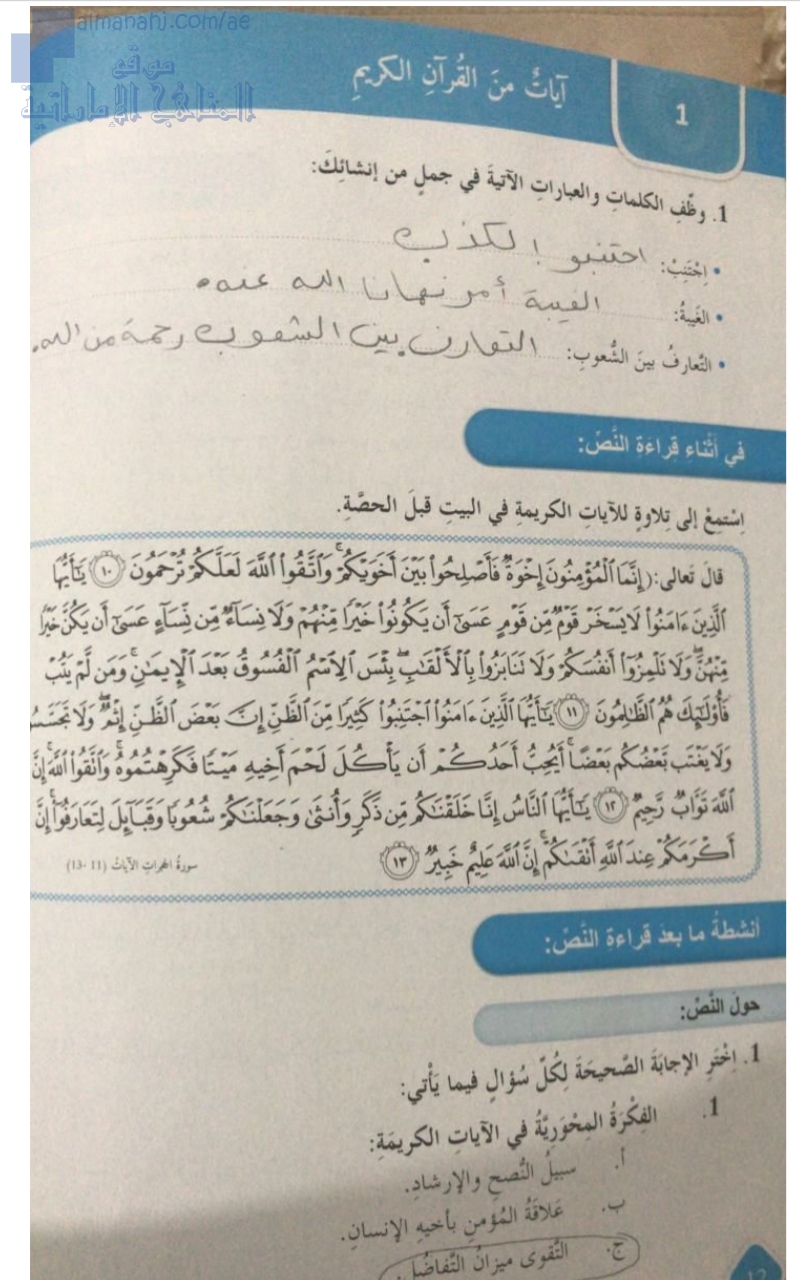 almanahj.com/ae
موقع
المناهج الإماراتية
1
آياتٌ منَ القُرآنِ الكريمِ
1. وظِّفِ الكلماتِ والعباراتِ الآتيةَ في جملٍ من إنشائِكَ:
• اِجْتَنِبْ: اجتنبو الكذب
• الغَيبةُ: الغيبة أمر نهانا الله عنه.
• التَّعارفُ بينَ الشُّعوبِ: التعارف بين الشعوب رحمة من الله.
في أَثْناءِ قِراءَةِ النَّصِّ:
اِسْتمِعْ إلى تِلاوةٍ للآياتِ الكريمةِ في البيتِ قبلَ الحصَّةِ.
قالَ تَعالى: (إِنَّمَا الْمُؤْمِنُونَ إِخْوَةٌ فَأَصْلِحُوا بَيْنَ أَخَوَيْكُمْ وَاتَّقُوا اللَّهَ لَعَلَّكُمْ تُرْحَمُونَ ١٠ يَٰأَيُّهَا
الَّذِينَ ءَامَنُوا لَا يَسْخَرْ قَوْمٌ مِّن قَوْمٍ عَسَىٰ أَن يَكُونُوا خَيْرًا مِّنْهُمْ وَلَا نِسَاءٌ مِّن نِّسَاءٍ عَسَىٰ أَن يَكُنَّ خَيْرًا
مِّنْهُنَّ وَلَا تَلْمِزُوا أَنفُسَكُمْ وَلَا تَنَابَزُوا بِالْأَلْقَابِ بِئْسَ الِاسْمُ الْفُسُوقُ بَعْدَ الْإِيمَٰنِ وَمَن لَّمْ يَتُبْ
فَأُولَٰئِكَ هُمُ الظَّالِمُونَ ١١ يَٰأَيُّهَا الَّذِينَ ءَامَنُوا اجْتَنِبُوا كَثِيرًا مِّنَ الظَّنِّ إِنَّ بَعْضَ الظَّنِّ إِثْمٌ وَلَا تَجَسَّسُوا
وَلَا يَغْتَب بَّعْضُكُم بَعْضًا أَيُحِبُّ أَحَدُكُمْ أَن يَأْكُلَ لَحْمَ أَخِيهِ مَيْتًا فَكَرِهْتُمُوهُ وَاتَّقُوا اللَّهَ إِنَّ
اللَّهَ تَوَّابٌ رَّحِيمٌ ١٢ يَٰأَيُّهَا النَّاسُ إِنَّا خَلَقْنَٰكُم مِّن ذَكَرٍ وَأُنثَىٰ وَجَعَلْنَٰكُمْ شُعُوبًا وَقَبَائِلَ لِتَعَارَفُوا إِنَّ
أَكْرَمَكُمْ عِندَ اللَّهِ أَتْقَىٰكُمْ إِنَّ اللَّهَ عَلِيمٌ خَبِيرٌ ١٣
سورةُ الحجراتِ الآياتُ (11 -13)
أنشطةُ ما بعدَ قراءةِ النَّصِّ:
حولَ النَّصِّ:
1. اِخْتَرِ الإجابَةَ الصَّحيحَةَ لِكُلِّ سُؤالٍ فيما يَأْتي:
1. الفِكْرَةُ المِحْوَرِيَّةُ في الآياتِ الكريمَةِ:
أ. سبيلُ النُّصحِ والإرشادِ.
ب. عَلاقَةُ المُؤمنِ بأخيهِ الإنسانِ.
ج. التَّقوى ميزانُ التَّفاضُلِ.
12